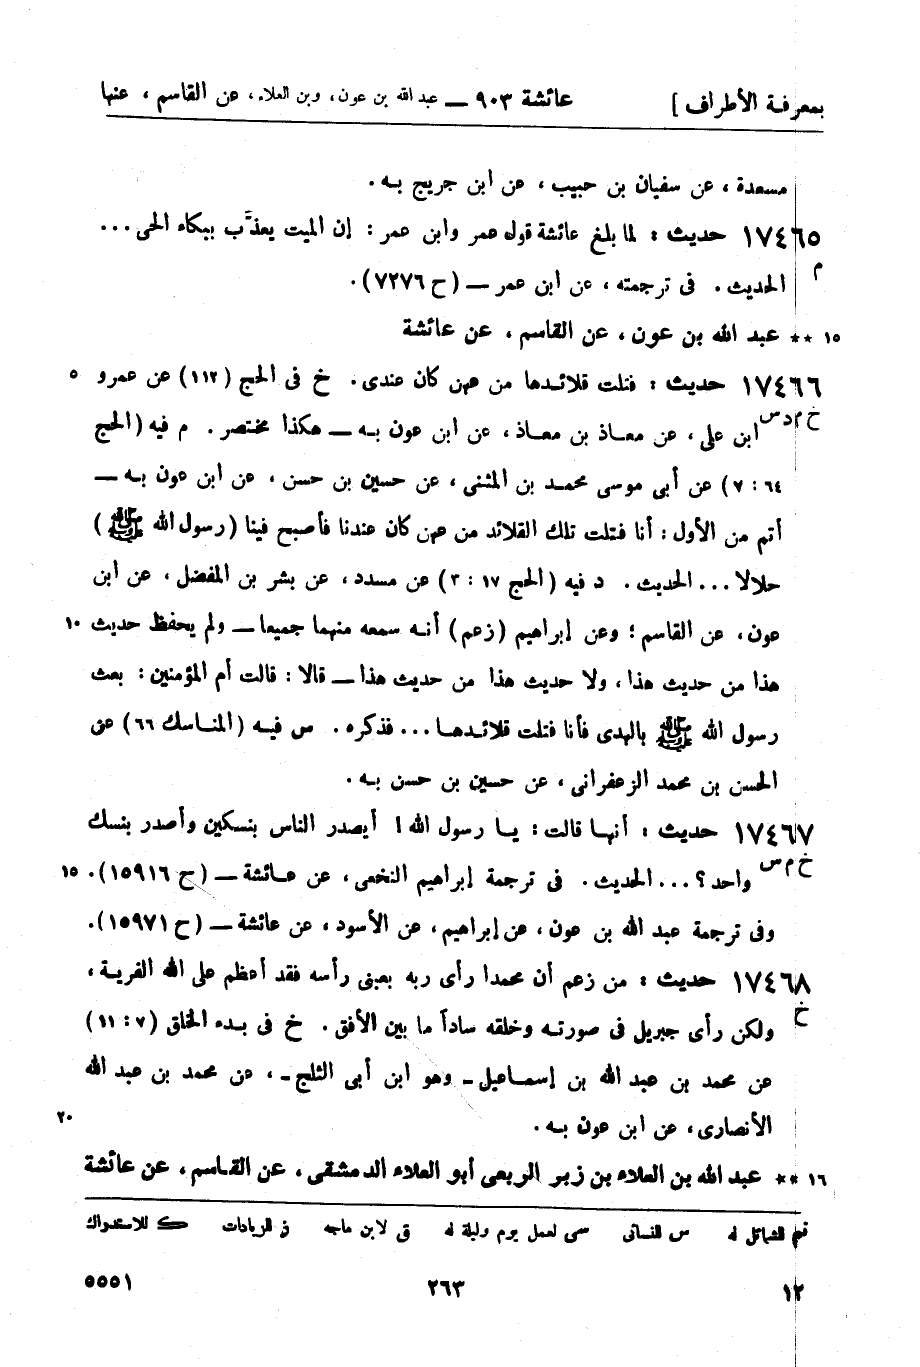 بمعرفة الأطراف] عائشة ٩٠٣ — عبد الله بن عون، وبن العلاء، عن القاسم، عنها
مسعدة، عن سفيان بن حبيب، عن ابن جريج به.
١٧٤٦٥ حديث: لما بلغ عائشة قول عمر وابن عمر: إن الميت يعذَّب ببكاء الحى...
م الحديث. فى ترجمته، عن ابن عمر — (ح ٧٢٧٦).
١٥ ** عبد الله بن عون، عن القاسم، عن عائشة
١٧٤٦٦ حديث: فتلت قلائدها من عهن كان عندى. خ فى الحج (١١٢) عن عمرو ٥
خ م د س ابن على، عن معاذ بن معاذ، عن ابن عون به — هكذا مختصر. م فيه (الحج
٦٤: ٧) عن أبى موسى محمد بن المثنى، عن حسين بن حسن، عن ابن عون به —
أتم من الأول: أنا فتلت تلك القلائد من عهن كان عندنا فأصبح فينا (رسول الله ﷺ)
حلالا... الحديث. د فيه (الحج ١٧: ٣) عن مسدد، عن بشر بن المفضل، عن ابن
عون، عن القاسم؛ وعن إبراهيم (زعم) أنه سمعه منهما جميعا — ولم يحفظ حديث ١٠
هذا من حديث هذا، ولا حديث هذا من حديث هذا — قالا: قالت أم المؤمنين: بعث
رسول الله ﷺ بالهدى فأنا فتلت قلائدها... فذكره. س فيه (المناسك ٦٦) عن
الحسن بن محمد الزعفرانى، عن حسين بن حسن به.
١٧٤٦٧ حديث: أنها قالت: يا رسول الله! أيصدر الناس بنسكين وأصدر بنسك
خ م س واحد؟... الحديث. فى ترجمة إبراهيم النخعى، عن عائشة — (ح ١٥٩١٦). ١٥
وفى ترجمة عبد الله بن عون، عن إبراهيم، عن الأسود، عن عائشة — (ح ١٥٩٧١).
١٧٤٦٨ حديث: من زعم أن محمدا رأى ربه بعينى رأسه فقد أعظم على الله الفرية،
خ ولكن رأى جبريل فى صورته وخلقه ساداً ما بين الأفق. خ فى بدء الخلق (٧: ١١)
عن محمد بن عبد الله بن إسماعيل - وهو ابن أبى الثلج -، عن محمد بن عبد الله
الأنصارى، عن ابن عون به. ٢٠
١٦ ** عبد الله بن العلاء بن زبر الربعى أبو العلاء الدمشقى، عن القاسم، عن عائشة
تم للشمائل له س للنسائى سى لعمل يوم وليلة له ق لابن ماجه ز للزيادات ك للاستدراك
١٢ ٢٦٣ ٥٥٥١